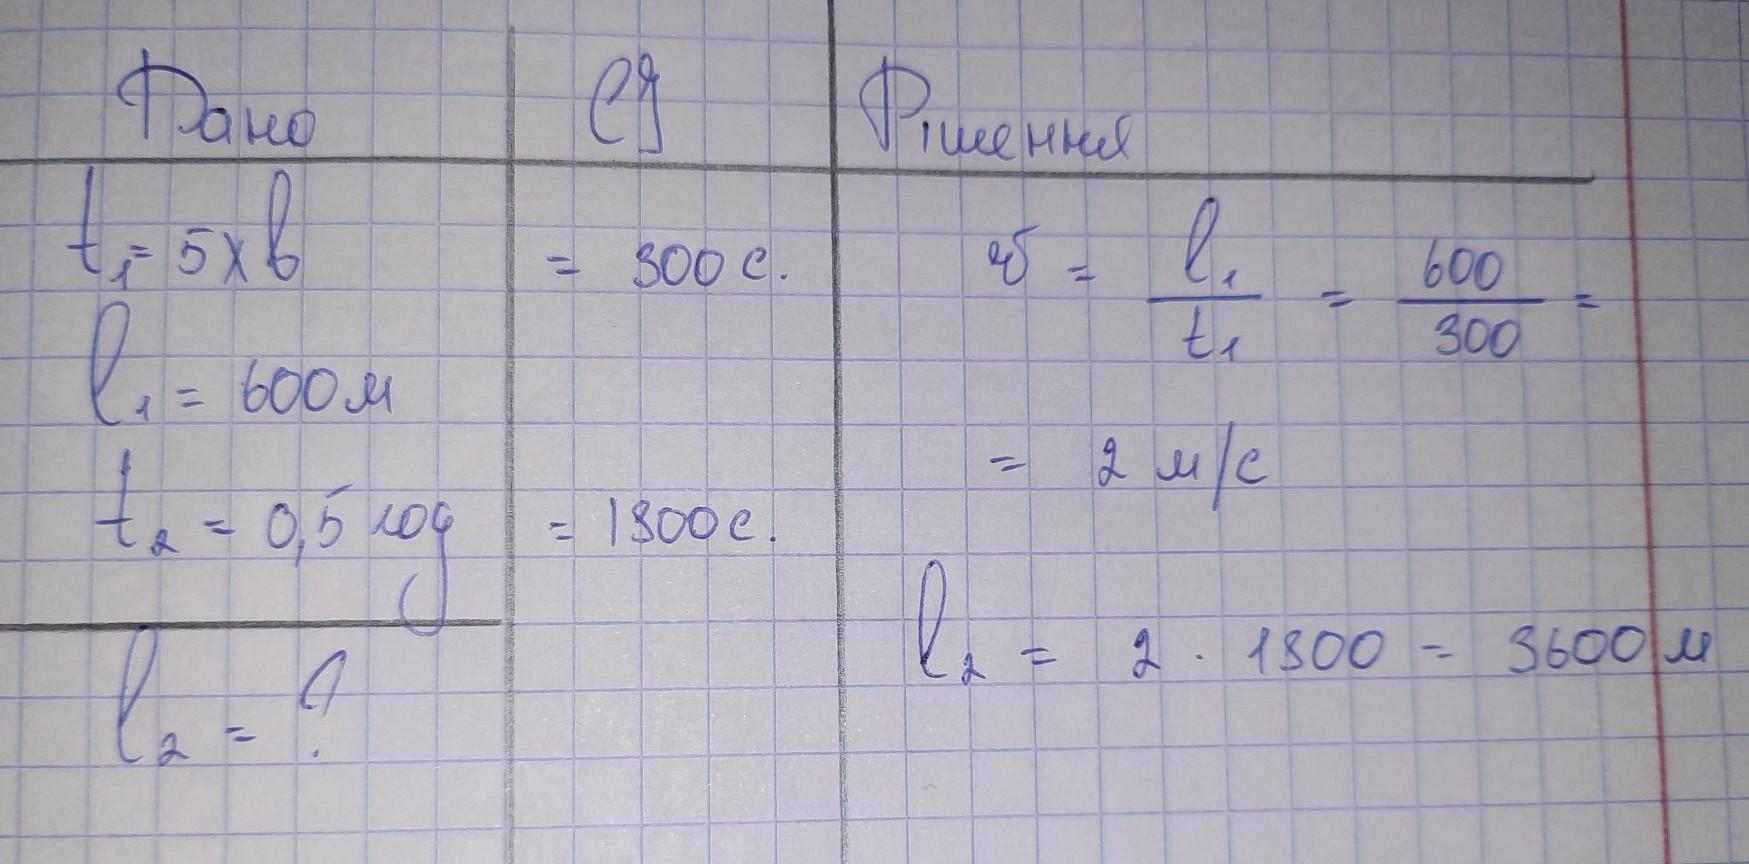 Дано СІ Рішення
t₁ = 5 хв = 300 с. υ = l₁/t₁ = 600/300 =
l₁ = 600 м
= 2 м/с
t₂ = 0,5 год = 1800 с.
l₂ = 2 · 1800 = 3600 м
l₂ = ?